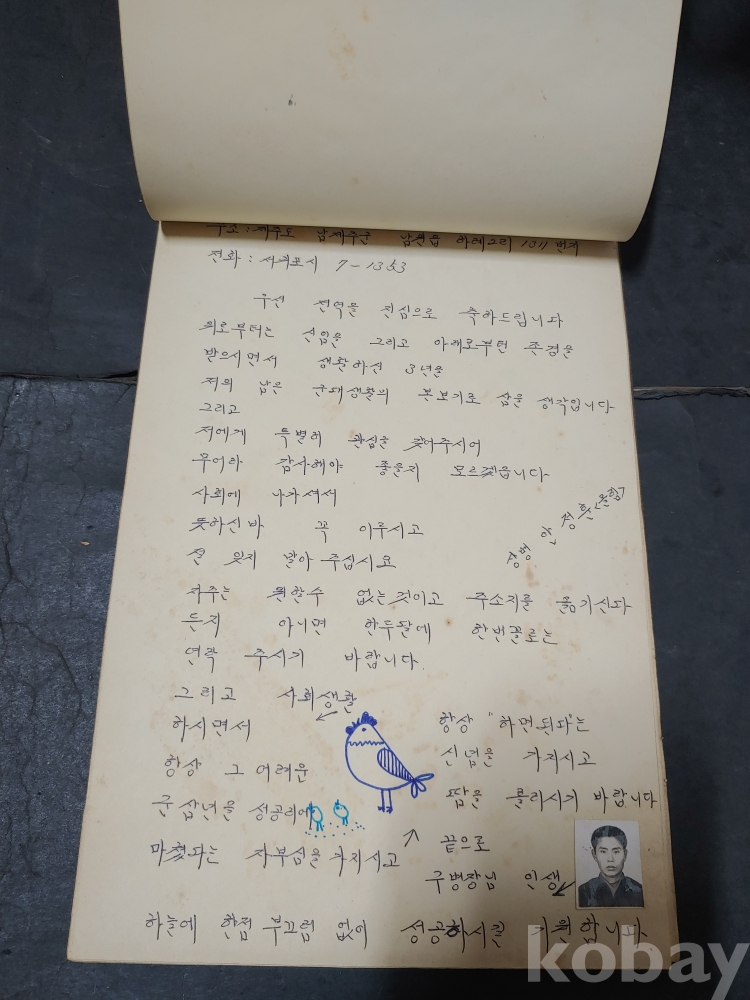 주소 : 제주도 남제주군 남원읍 하례2리 1011 번지
전화 : 서귀포시 7-1353
우선 전역을 진심으로 축하드립니다
위로부터는 신임을 그리고 아래로부턴 존경을
받으시면서 생활하신 3년을
저의 남은 군대생활의 본보기로 삼을 생각입니다
그리고
저에게 특별히 관심을 갖어주시어
무어라 감사해야 좋을지 모르겠읍니다
사회에 나가셔서
뜻하신바 꼭 이루시고
절 잊지 말아 주십시요
자주는 원할수 없는것이고 주소지를 옮기신다
든지 아니면 한두달에 한번꼴로는
연락 주시기 바랍니다.
그리고 사회생활
하시면서
항상 그 어려운
군 삼년을 성공리에
마쳤다는 자부심을 가지시고
항상 "하면된다"는
신념을 가지시고
땀을 흘리시기 바랍니다
끝으로
구병장님 인생
하늘에 한점 부끄럼 없이 성공하시길 기원합니다
kobay